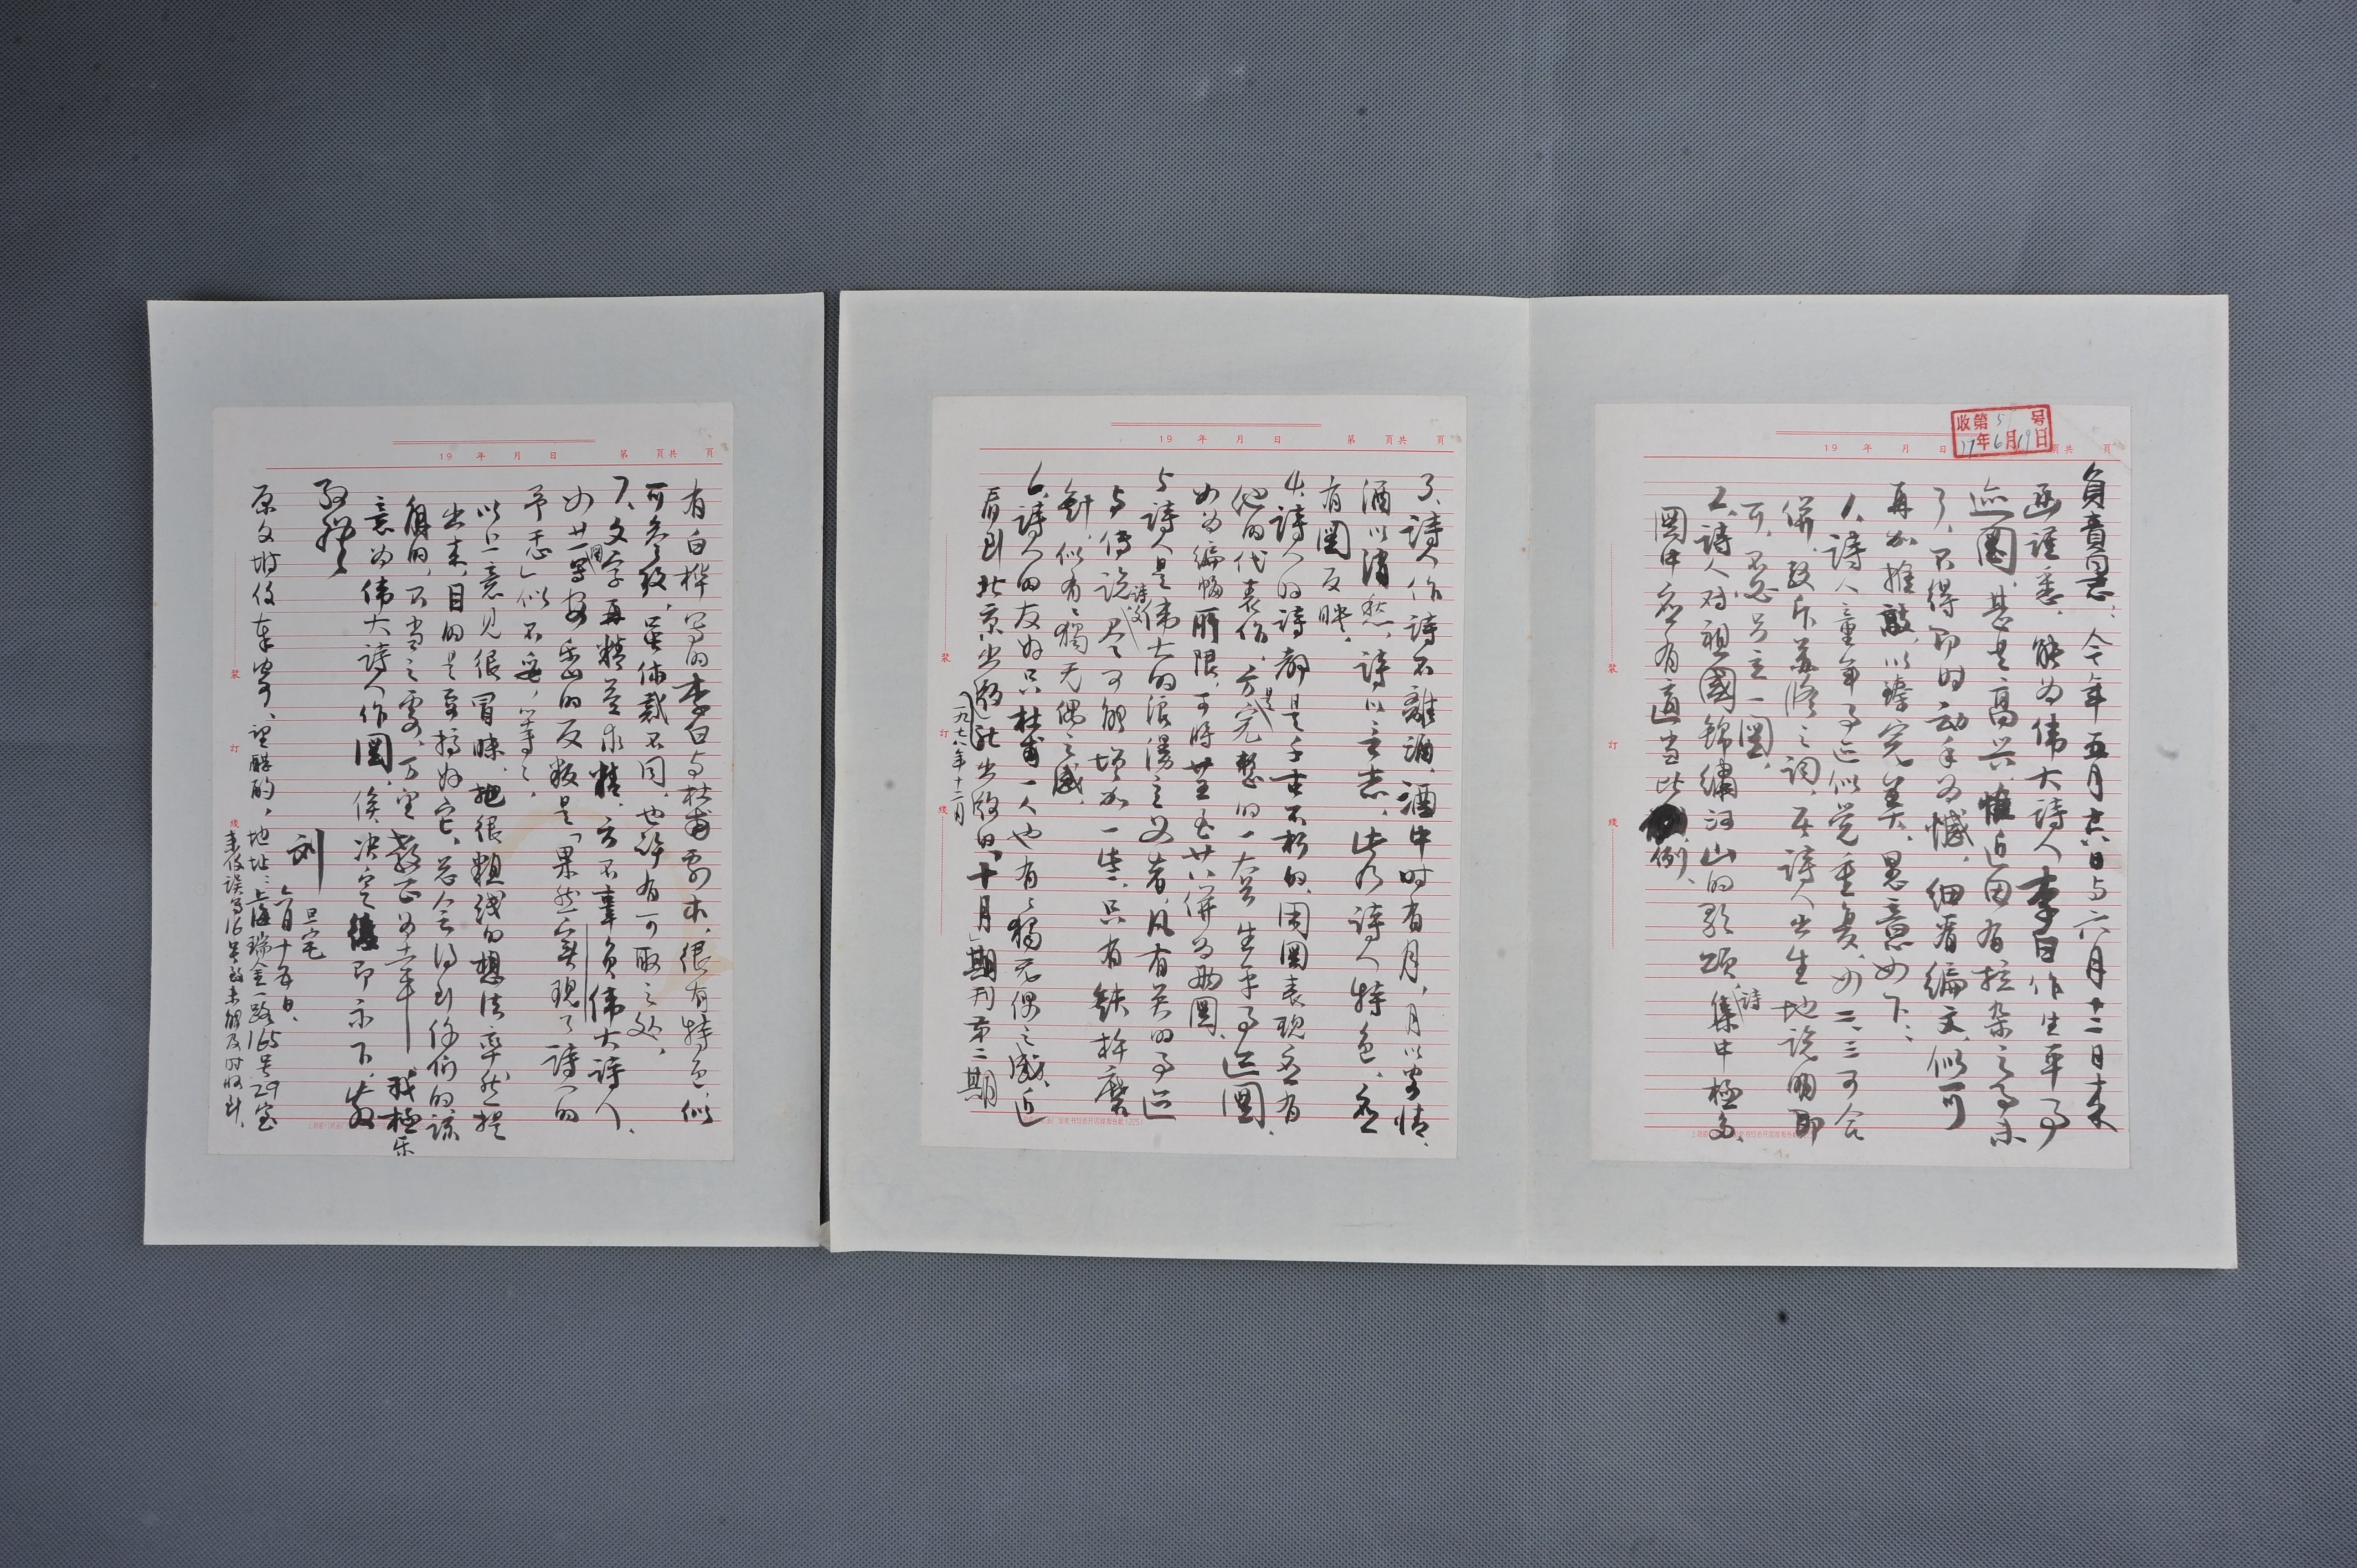 收第5 号
79年6月19日
19 年 月 日 第 頁共 頁
負責同志：今年五月十六日与六月十二日来
函谨悉，能为伟大诗人李白作生平事
迹图，甚是高兴，惟近因有拉杂之事未
了，不得即时动手为憾，细看编文，似可
再加推敲，以臻完美，愚意如下：
1、詩人童年事迹似觉重复，如二、三可合
併，致斥蒼蒼之词，在詩人出生地说明即
可，不必另立一图，
2、詩人对祖國錦繡河山的歌頌，詩集中極多，
图中应有適当比例、
装
訂
线
19 年 月 日 第 頁共 頁
3、詩人作詩不離酒，酒中时有月，月以寄情，
酒以消愁，詩以言志，此乃詩人特色，应
有图反映。
4、詩人的詩都是千古不朽的，因图表现应有
他的代表作，方是完整的一套生平事迹图，
如为编幅所限，可将廿五至廿八併为两图，
5、詩人是伟大的浪漫主义者，凡有关的事迹
与传说詩文尽可能增加一些，只有鉄杵磨
針，似有独无偶之感，
6、詩人的友好只杜甫一人也有独无偶之感，近
看到北京出版社出版的「十月」期刊第二期
一九七八年十二月
装
訂
线
19 年 月 日 第 頁共 頁
有白桦写的李白与杜甫剧本，很有特色，似
可参考，虽体裁不同，也许有可取之处，
7、文字再精益求精，方不辜负伟大詩人，
如廿一图写安禄山的反叛是「果然实现了詩人的
予言」似不妥，等等，
以上意见很冒昧，把很粗浅的想法率然提
出来，目的是要搞好它，总会得到你们的諒
解的，不当之处，万望教正为幸 我極乐
意为伟大詩人作图，俟决定后即示下，此致
敬礼
刘旦宅
六月十五日，
原文附後奉寄，望酌酌，地址：上海瑞金一路165号29室
来信误写16号故未能及时收到，
装
訂
线